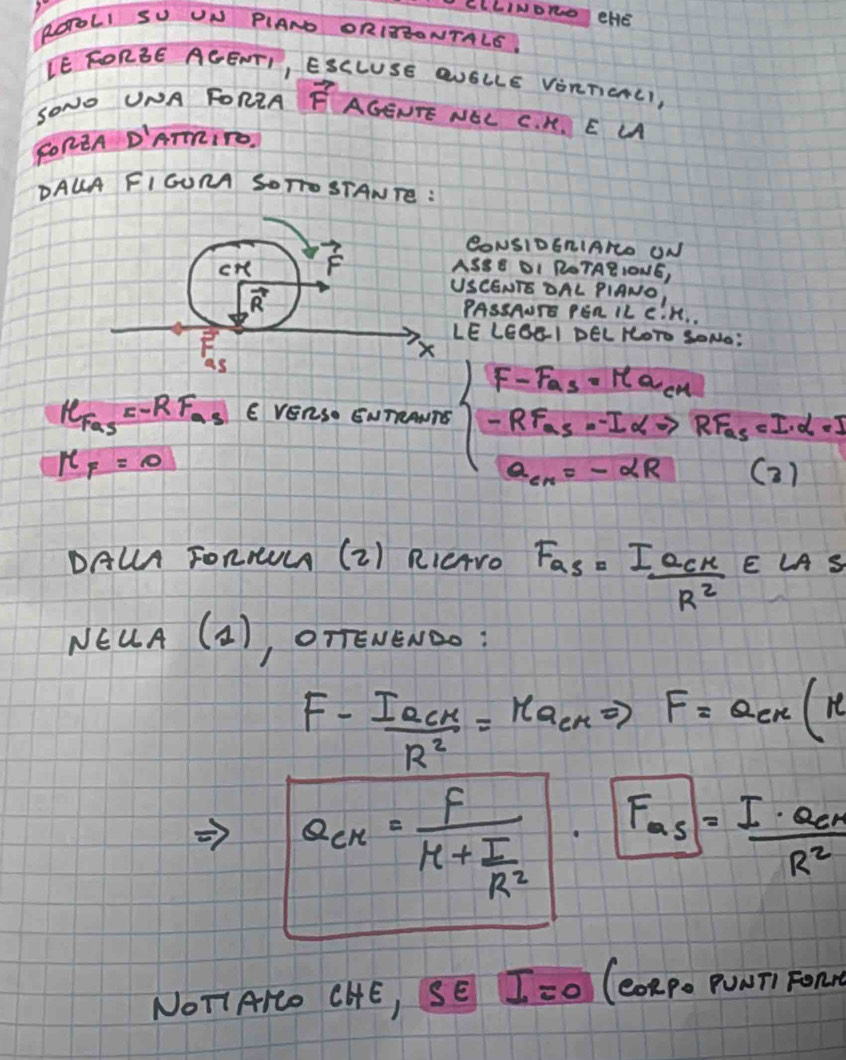 CILINDRO CHE
ROTOLI SU UN PIANO ORIZZONTALE.
LE FORZE AGENTI, ESCLUSE QUELLE VERTICALI,
SONO UNA FORZA F⃗ AGENTE NEL C.M. E LA
FORZA D'ATTRITO.
DALLA FIGURA SOTTOSTANTE:
CM
F⃗
R⃗
F⃗as
x
CONSIDERIAMO UN
ASSE DI ROTAZIONE,
USCENTE DAL PIANO,
PASSANTE PER IL C.M..
LE LEGGI DEL MOTO SONO:
F - Fas = M aCM
MFas = -R Fas E VERSO ENTRANTE
-RFas = -Iα => RFas = I·α = I
MF = 0
aCM = -αR (2)
DALLA FORMULA (2) RICAVO Fas = I aCM / R² E LA S
NELLA (1), OTTENENDO:
F - I aCM / R² = M aCM => F = aCM (M
=> aCM = F / (M + I / R²) . Fas = I · aCM / R²
NOTIAMO CHE, SE I = 0 (CORPO PUNTIFORM